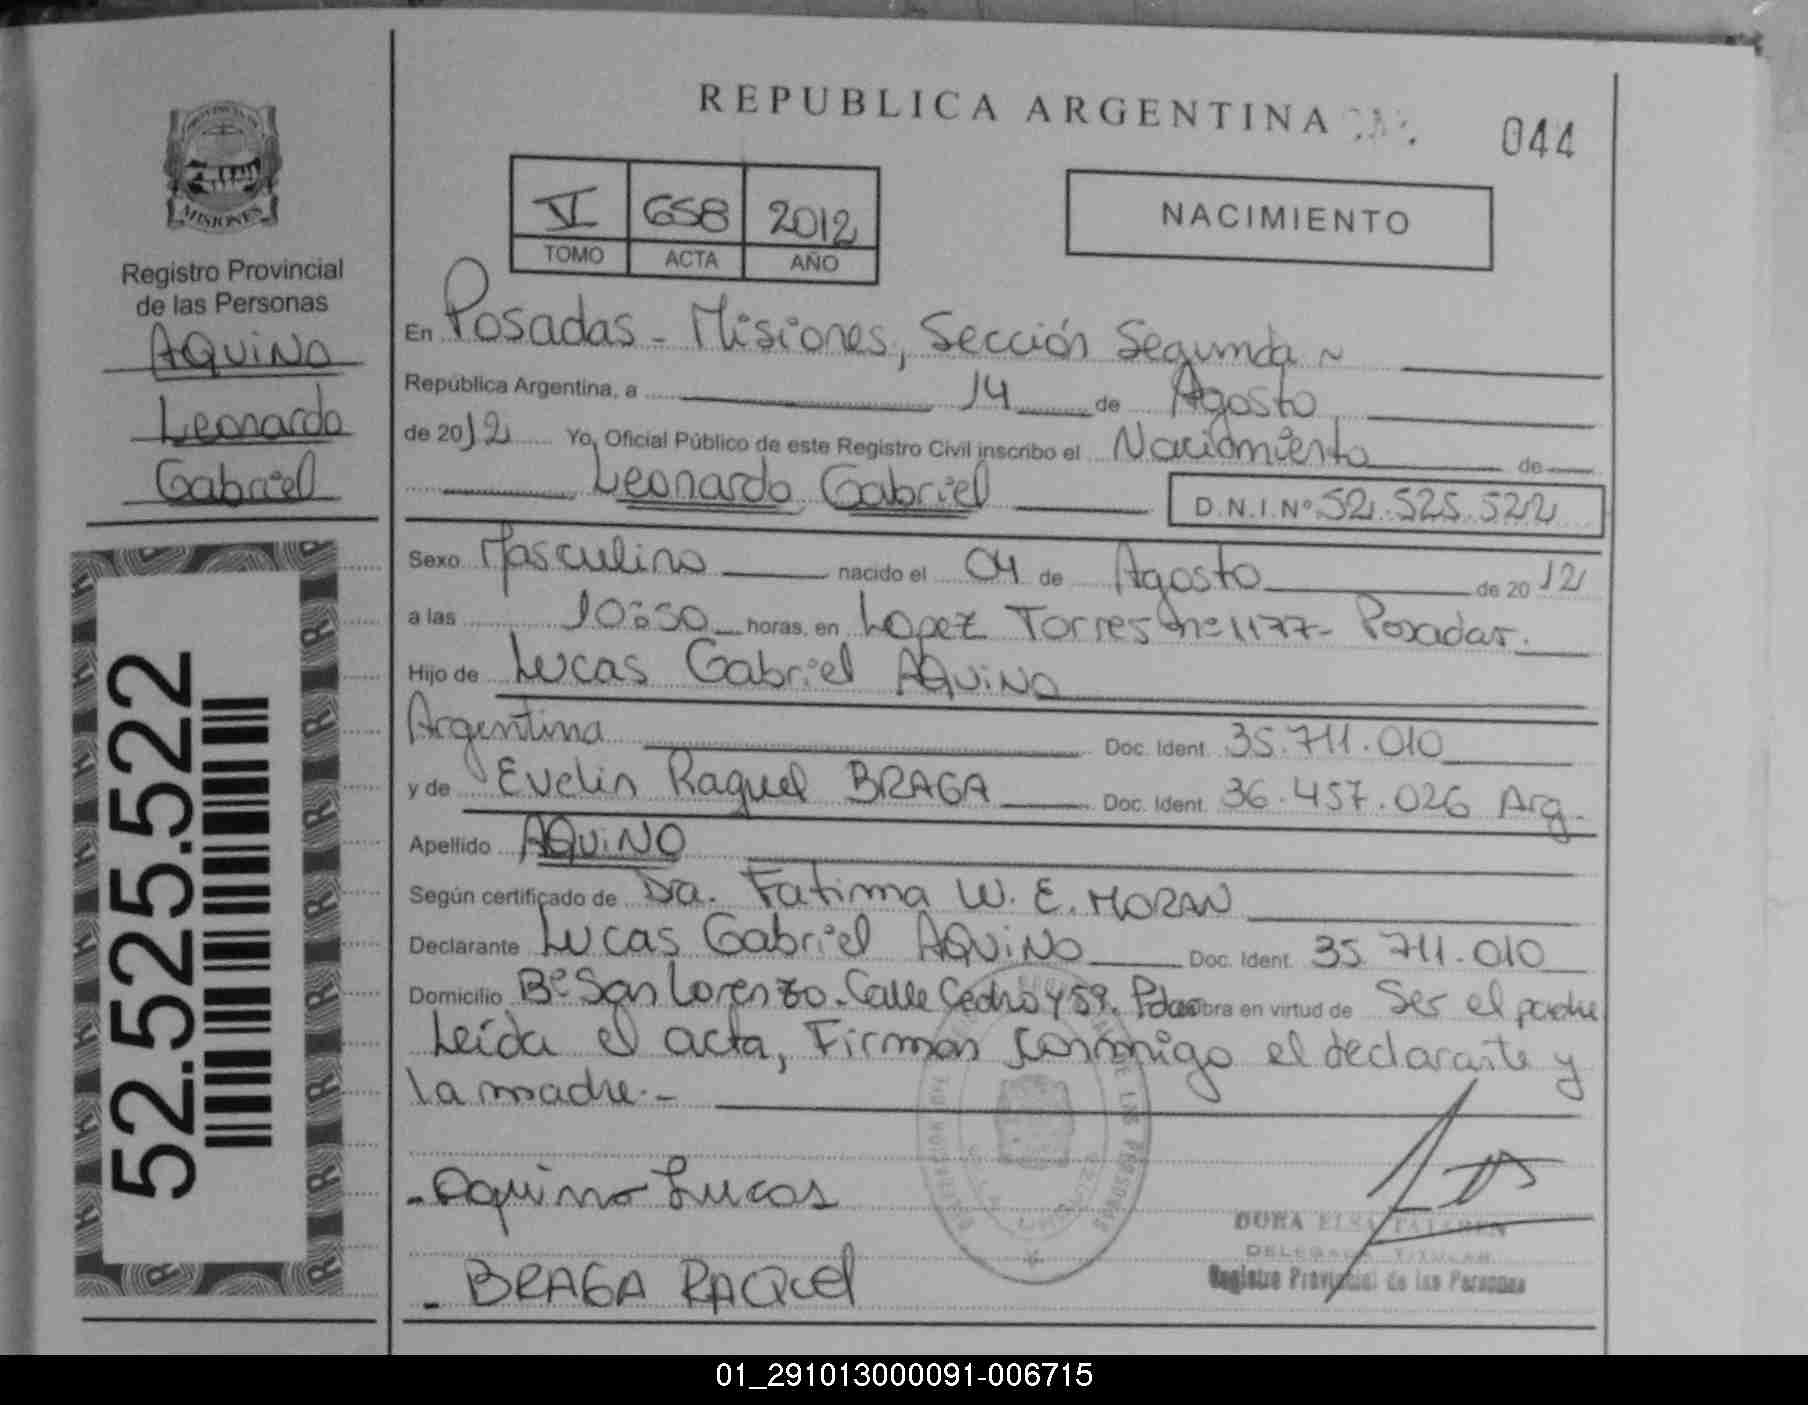 REPUBLICA ARGENTINA
044
PROVINCIA DE
MISIONES
Registro Provincial
de las Personas
AQUINO
Leonardo
Gabriel
52.525.522
VI 658 2012
TOMO ACTA AÑO
NACIMIENTO
En Posadas - Misiones, Sección Segunda ~
República Argentina, a 14 de Agosto
de 2012 Yo, Oficial Público de este Registro Civil inscribo el Nacimiento de
Leonardo Gabriel D.N.I.Nº 52.525.522
Sexo Masculino nacido el 04 de Agosto de 2012
a las 10:50 horas, en Lopez Torres nº 1177- Posadas.
Hijo de Lucas Gabriel AQUINO
Argentina Doc. Ident. 35.711.010
y de Evelin Raquel BRAGA Doc. Ident. 36.457.026 Arg.
Apellido AQUINO
Según certificado de Dra. Fatima W. E. MORAN
Declarante Lucas Gabriel AQUINO Doc. Ident. 35.711.010
Domicilio Bº San Lorenzo - Calle Cedro y 59. Pdas obra en virtud de Ser el padre
Leída el acta, Firman conmigo el declarante y
la madre.-
- Aquino Lucas
- BRAGA RAQUEL
DORA ELSA
DELEGADA TITULAR
Registro Provincial de las Personas
01_291013000091-006715